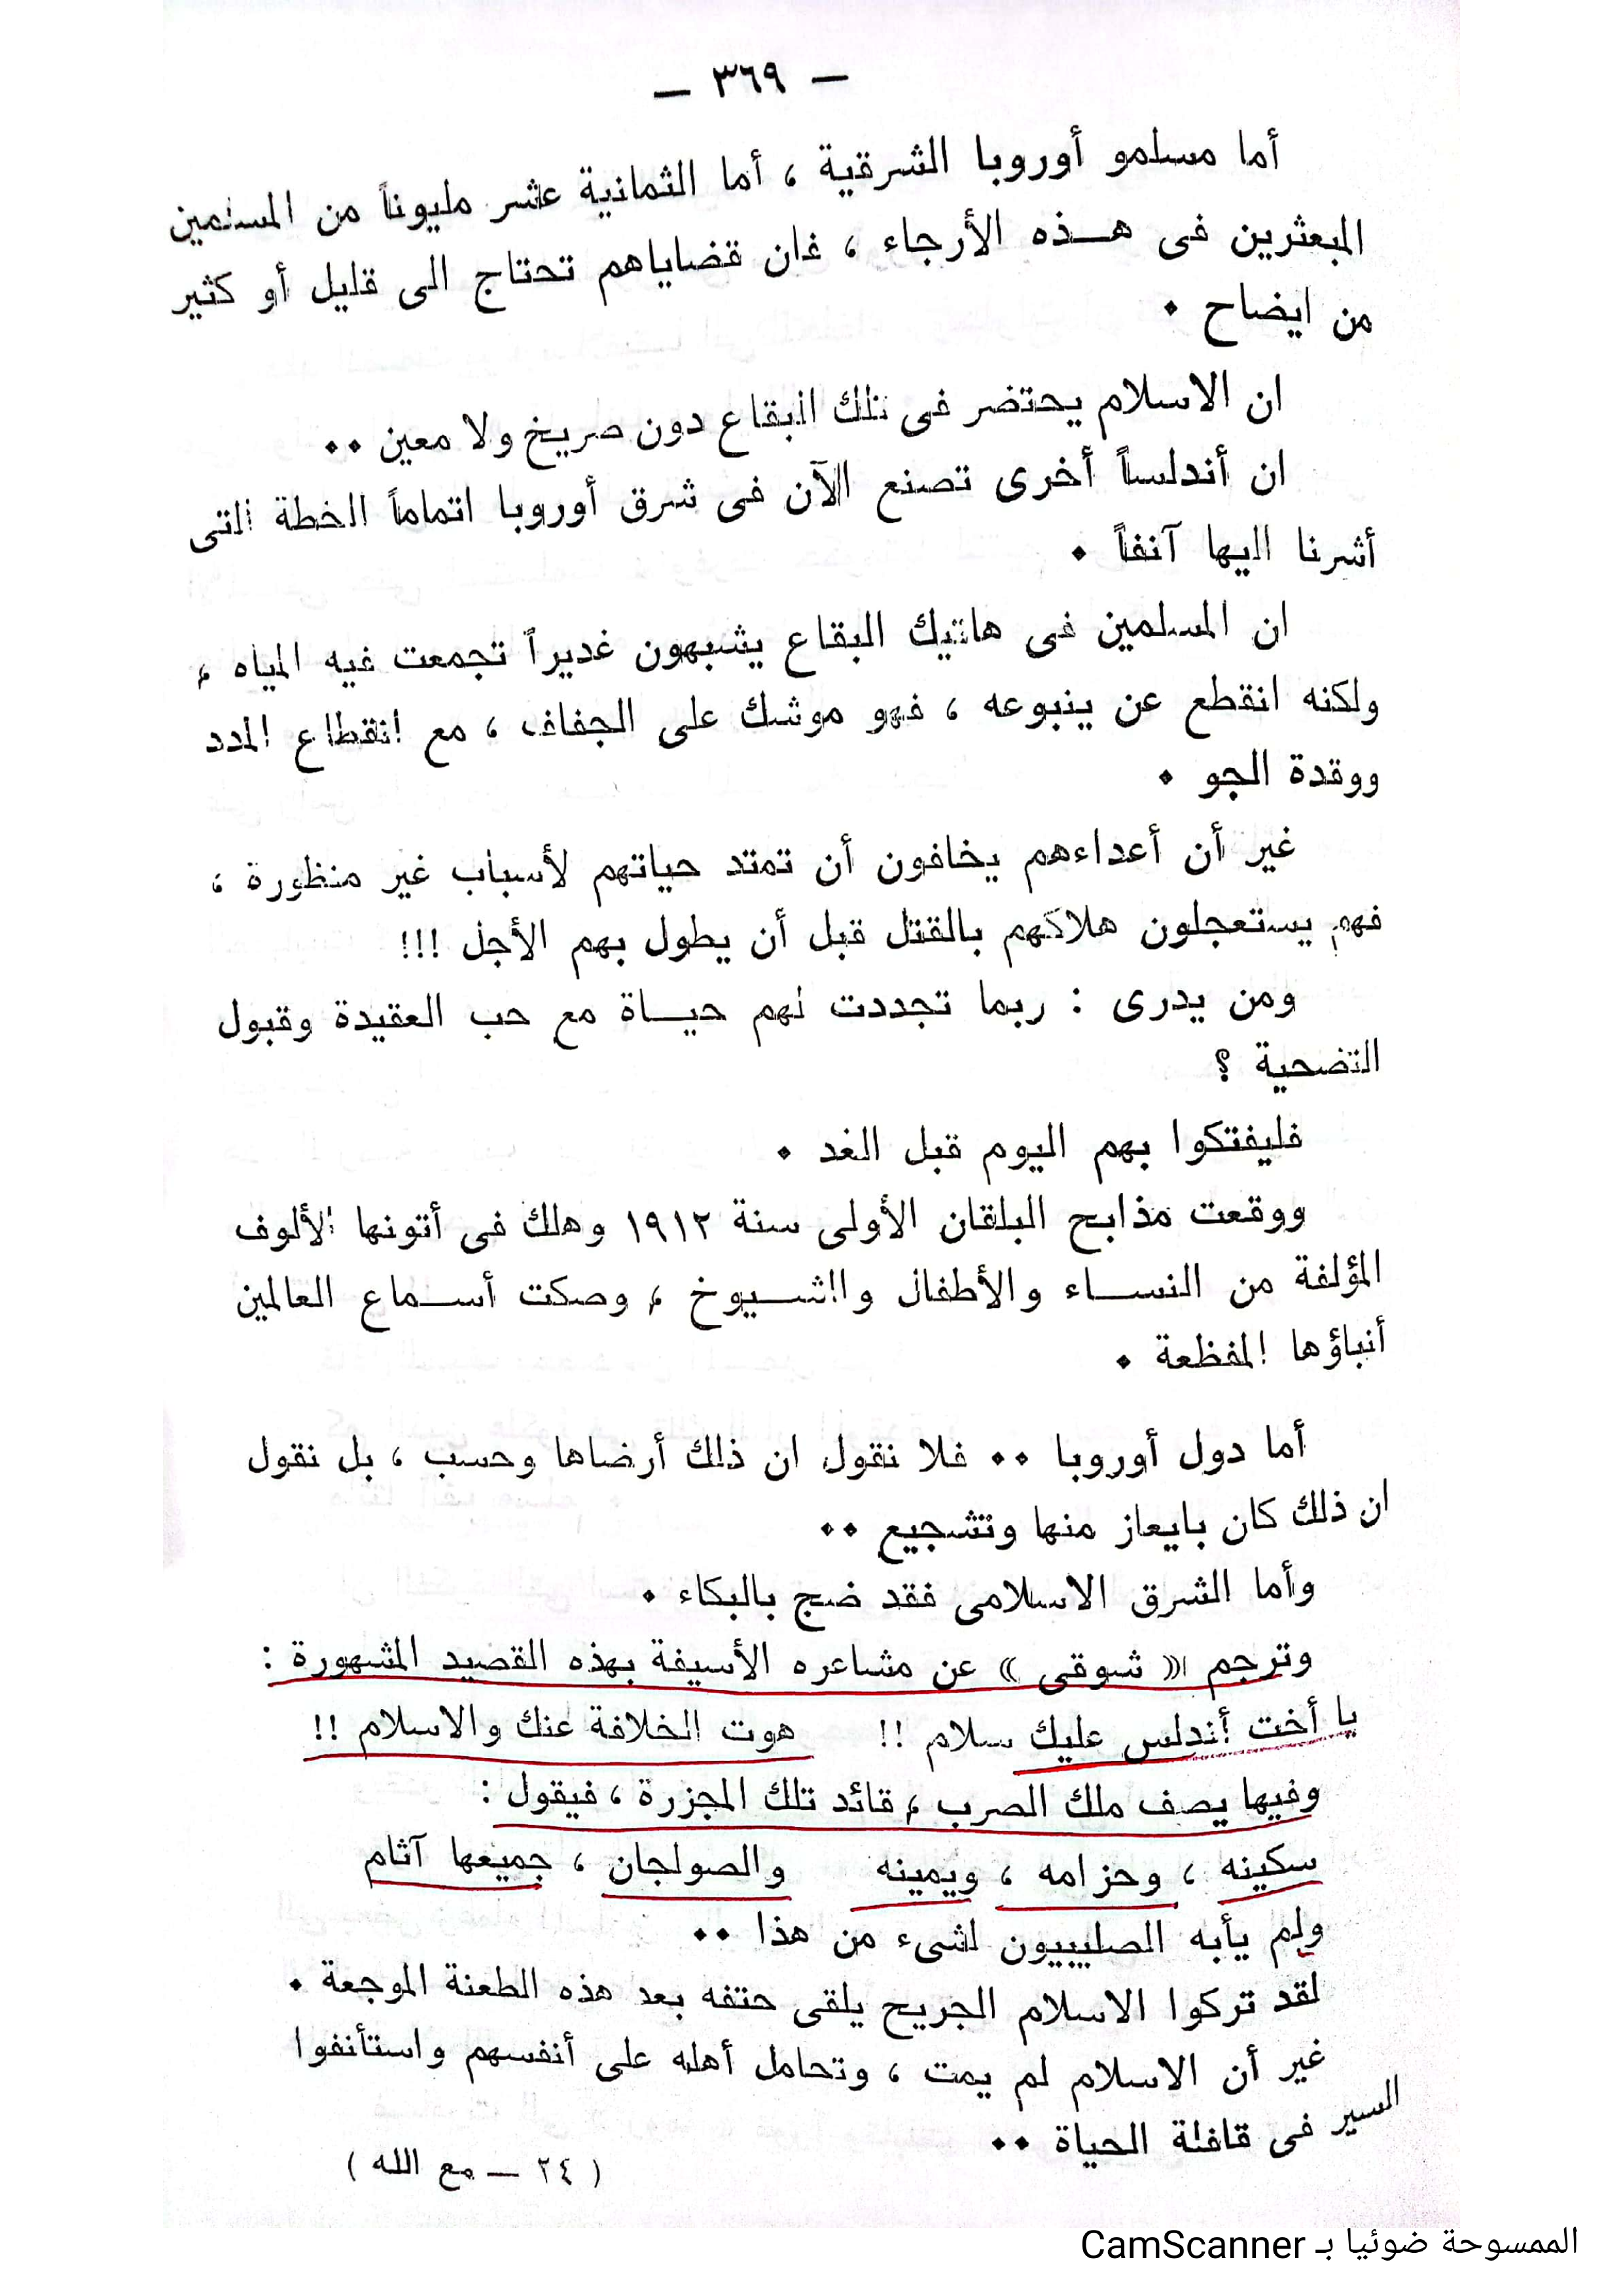 — ٣٦٩ —
أما مسلمو أوروبا الشرقية ، أما الثمانية عشر مليوناً من المسلمين
المبعثرين فى هـــذه الأرجاء ، فان قضاياهم تحتاج الى قليل أو كثير
من ايضاح •
ان الاسلام يحتضر فى تلك البقاع دون صريخ ولا معين ••
ان أندلساً أخرى تصنع الآن فى شرق أوروبا اتماماً الخطة التى
أشرنا اليها آنفاً •
ان المسلمين فى هاتيك البقاع يشبهون غديراً تجمعت فيه المياه ،
ولكنه انقطع عن ينبوعه ، فهو موشك على الجفاف ، مع انقطاع المدد
ووقدة الجو •
غير أن أعداءهم يخافون أن تمتد حياتهم لأسباب غير منظورة ،
فهم يستعجلون هلاكهم بالقتل قبل أن يطول بهم الأجل !!!
ومن يدرى : ربما تجددت لهم حيـــاة مع حب العقيدة وقبول
التضحية ؟
فليفتكوا بهم اليوم قبل الغد •
ووقعت مذابح البلقان الأولى سنة ١٩١٢ وهلك فى أتونها الألوف
المؤلفة من النســـاء والأطفال والشـــيوخ ، وصكت أســـماع العالمين
أنباؤها المفظعة •
أما دول أوروبا •• فلا نقول ان ذلك أرضاها وحسب ، بل نقول
ان ذلك كان بايعاز منها وتشجيع ••
وأما الشرق الاسلامى فقد ضج بالبكاء •
وترجم « شوقى » عن مشاعره الأسيفة بهذه القصيد المشهورة :
يا أخت أندلس عليك سلام !! هوت الخلافة عنك والاسلام !!
وفيها يصف ملك الصرب ، قائد تلك المجزرة ، فيقول :
سكينه ، وحزامه ، ويمينه والصولجان ، جميعها آثام
ولم يأبه الصليبيون لشىء من هذا ••
لقد تركوا الاسلام الجريح يلقى حتفه بعد هذه الطعنة الموجعة •
غير أن الاسلام لم يمت ، وتحامل أهله على أنفسهم واستأنفوا
السير فى قافلة الحياة ••
( ٢٤ — مع الله )
الممسوحة ضوئيا بـ CamScanner